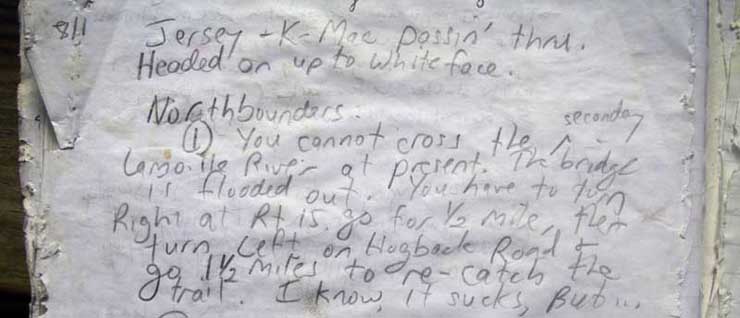 8/1 Jersey + K-Mac passin' thru.
Headed on up to Whiteface.
Northbounders:
① You cannot cross the ^ secondary
Lamoille River at present. The bridge
is flooded out. You have to turn
Right at Rt 15, go for 1/2 mile, then
turn Left on Hogback Road &
go 1 1/2 miles to re-catch the
trail. I know, it sucks, But...